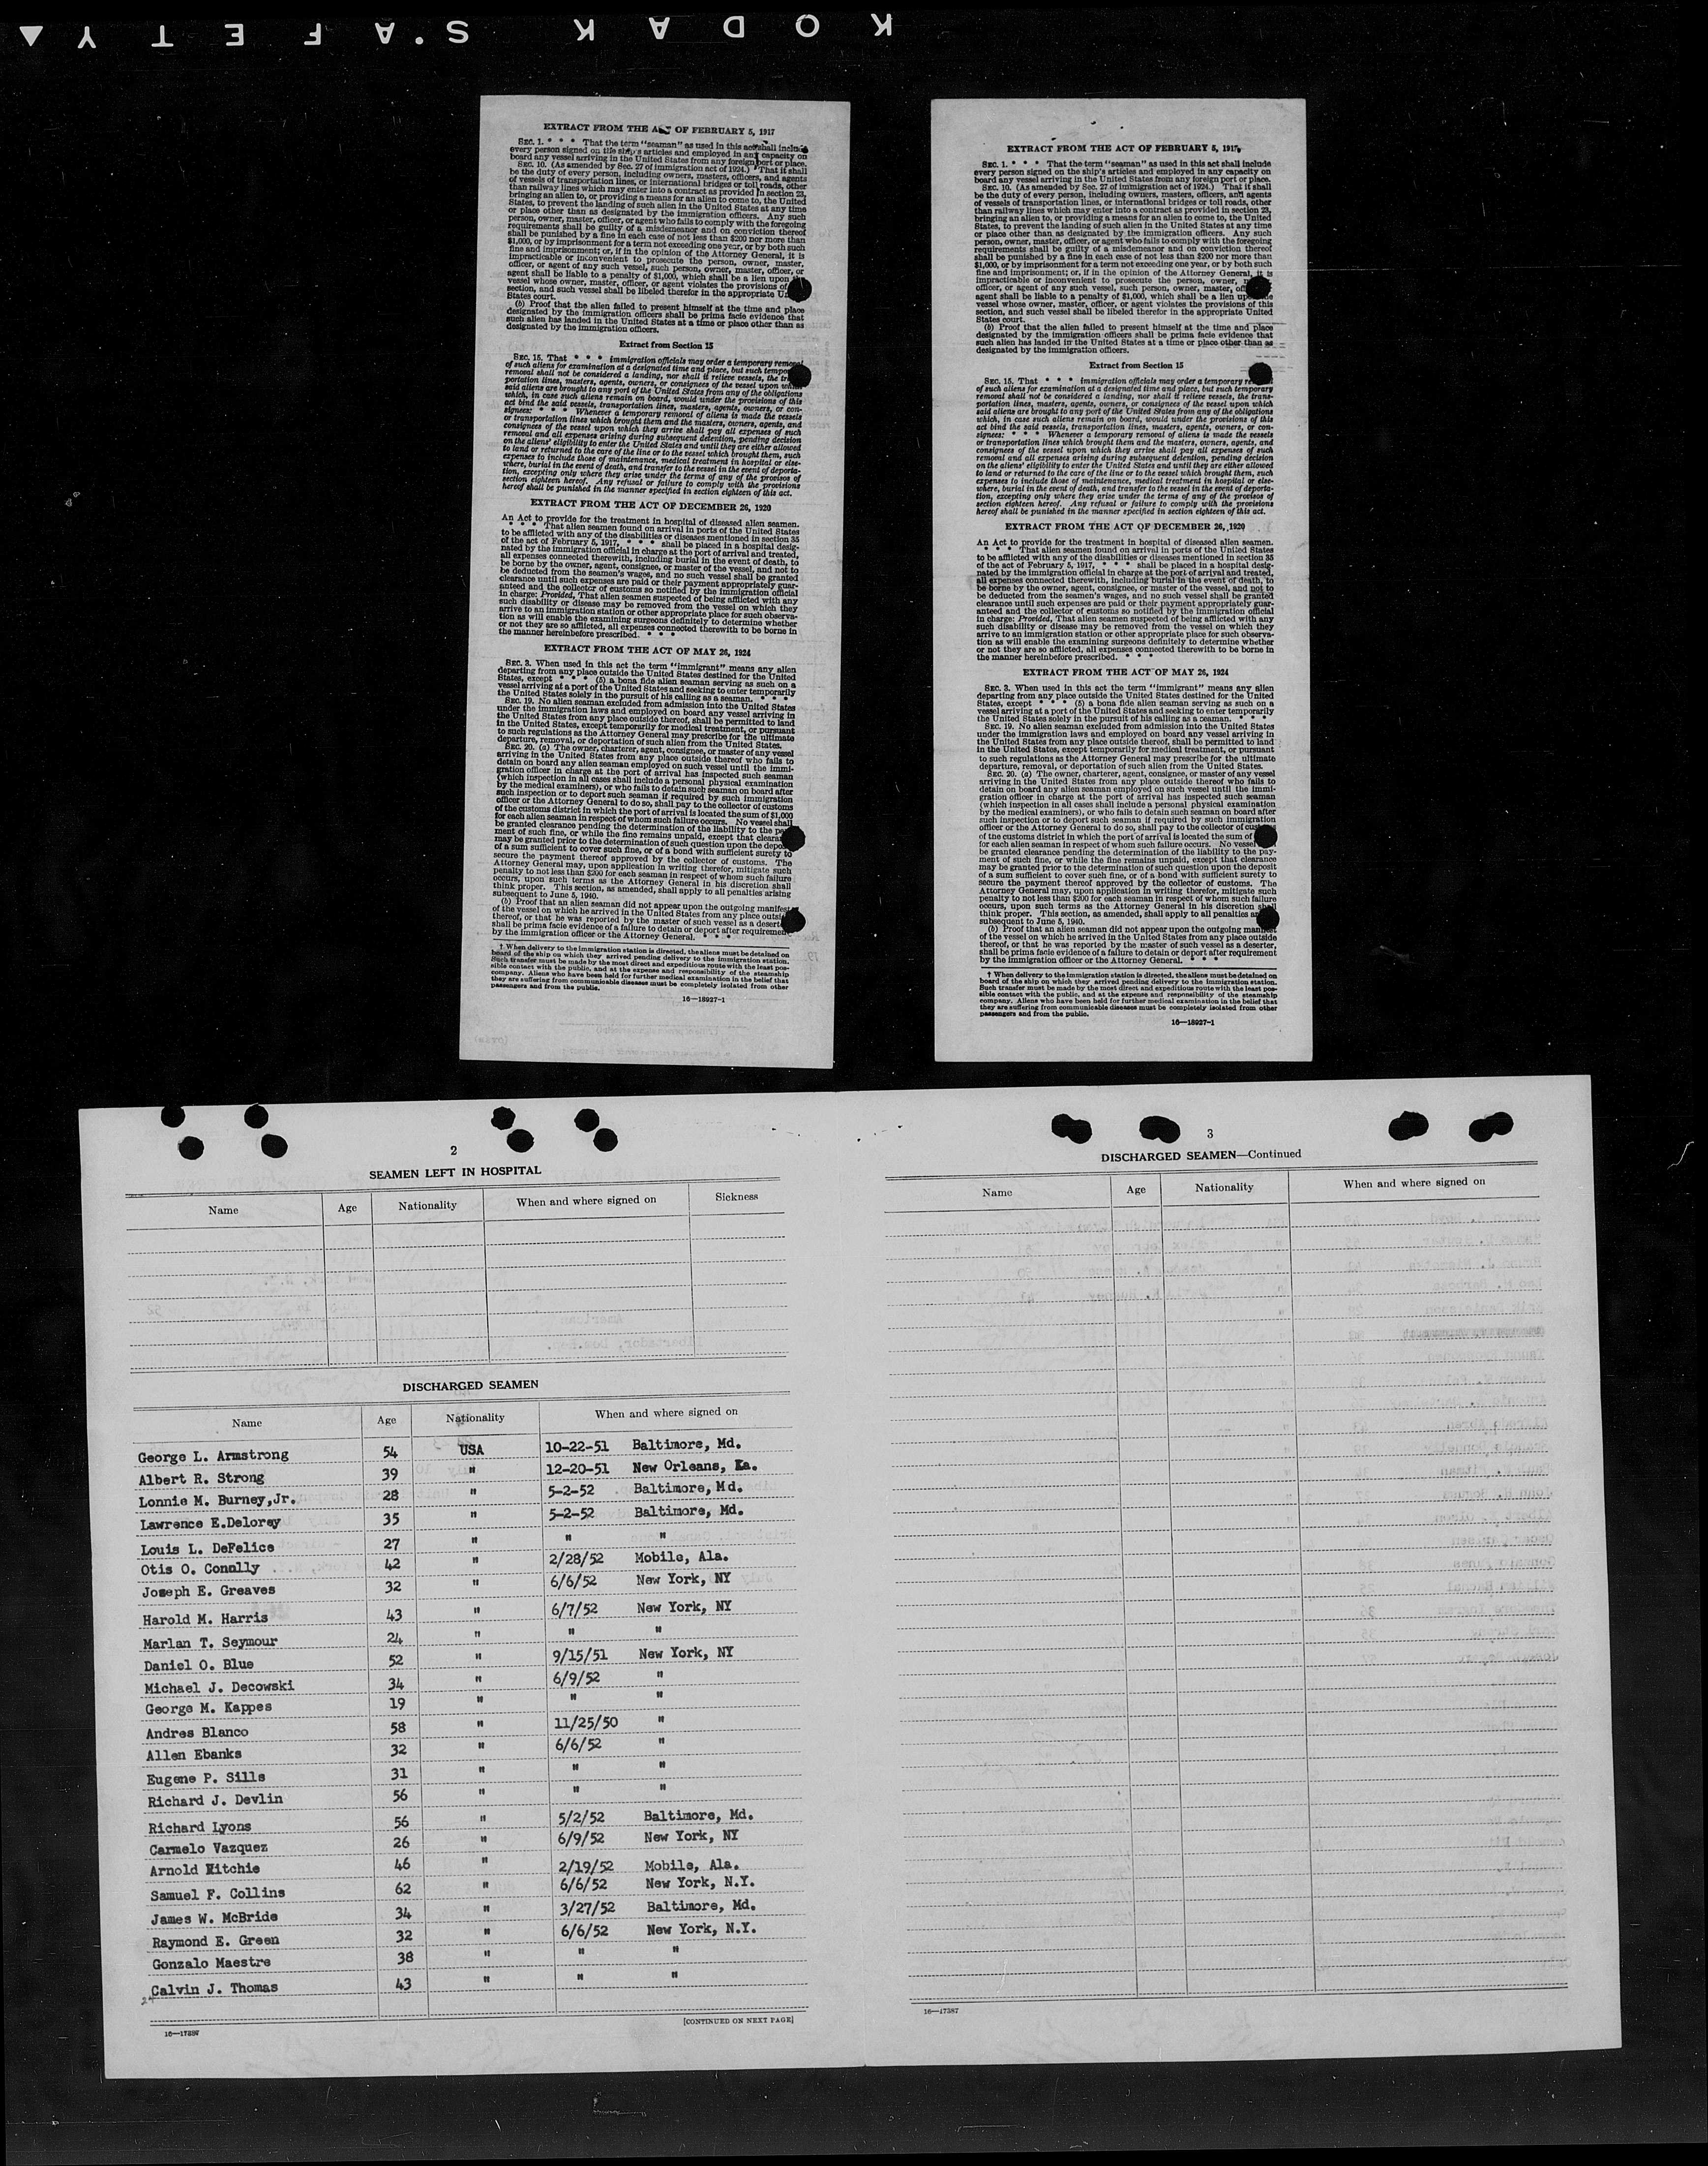 KODAK SAFETY
EXTRACT FROM THE ACT OF FEBRUARY 5, 1917
SEC. 1. * * * That the term "seaman" as used in this act shall include
every person signed on the ship's articles and employed in any capacity on
board any vessel arriving in the United States from any foreign port or place.
SEC. 10. (As amended by Sec. 27 of immigration act of 1924.) That it shall
be the duty of every person, including owners, masters, officers, and agents
of vessels of transportation lines, or international bridges or toll roads, other
than railway lines which may enter into a contract as provided in section 23,
bringing an alien to, or providing a means for an alien to come to, the United
States, to prevent the landing of such alien in the United States at any time
or place other than as designated by the immigration officers. Any such
person, owner, master, officer, or agent who fails to comply with the foregoing
requirements shall be guilty of a misdemeanor and on conviction thereof
shall be punished by a fine in each case of not less than $200 nor more than
$1,000, or by imprisonment for a term not exceeding one year, or by both such
fine and imprisonment; or, if in the opinion of the Attorney General, it is
impracticable or inconvenient to prosecute the person, owner, master,
officer, or agent of any such vessel, such person, owner, master, officer, or
agent shall be liable to a penalty of $1,000, which shall be a lien upon the
vessel whose owner, master, officer, or agent violates the provisions of
section, and such vessel shall be libeled therefor in the appropriate
States court.
(b) Proof that the alien failed to present himself at the time and place
designated by the immigration officers shall be prima facie evidence that
such alien has landed in the United States at a time or place other than as
designated by the immigration officers.
Extract from Section 15
SEC. 15. That * * * immigration officials may order a temporary removal
of such aliens for examination at a designated time and place, but such temporary
removal shall not be considered a landing, nor shall it relieve vessels, the
portation lines, masters, agents, owners, or consignees of the vessel upon which
said aliens are brought to any port of the United States from any of the obligations
which, in case such aliens remain on board, would under the provisions of this
act bind the said vessels, transportation lines, masters, agents, owners, or con-
signees: * * * Whenever a temporary removal of aliens is made the vessels
or transportation lines which brought them and the masters, owners, agents, and
consignees of the vessel upon which they arrive shall pay all expenses of such
removal and all expenses arising during subsequent detention, pending decision
on the aliens' eligibility to enter the United States and until they are either allowed
to land or returned to the care of the line or to the vessel which brought them, such
expenses to include those of maintenance, medical treatment in hospital or else-
where, burial in the event of death, and transfer to the vessel in the event of deporta-
tion, excepting only where they arise under the terms of any of the provisos of
section eighteen hereof. Any refusal or failure to comply with the provisions
hereof shall be punished in the manner specified in section eighteen of this act.
EXTRACT FROM THE ACT OF DECEMBER 26, 1920
An Act to provide for the treatment in hospital of diseased alien seamen.
* * * That alien seamen found on arrival in ports of the United States
to be afflicted with any of the disabilities or diseases mentioned in section 35
of the act of February 5, 1917, * * * shall be placed in a hospital desig-
nated by the immigration official in charge at the port of arrival and treated,
all expenses connected therewith, including burial in the event of death, to
be borne by the owner, agent, consignee, or master of the vessel, and not to
be deducted from the seamen's wages, and no such vessel shall be granted
clearance until such expenses are paid or their payment appropriately guar-
anteed and the collector of customs so notified by the immigration official
in charge: Provided, That alien seamen suspected of being afflicted with any
such disability or disease may be removed from the vessel on which they
arrive to an immigration station or other appropriate place for such observa-
tion as will enable the examining surgeons definitely to determine whether
or not they are so afflicted, all expenses connected therewith to be borne in
the manner hereinbefore prescribed. * * *
EXTRACT FROM THE ACT OF MAY 26, 1924
SEC. 3. When used in this act the term "immigrant" means any alien
departing from any place outside the United States destined for the United
States, except * * * (5) a bona fide alien seaman serving as such on a
vessel arriving at a port of the United States and seeking to enter temporarily
the United States solely in the pursuit of his calling as a seaman. * * *
SEC. 19. No alien seaman excluded from admission into the United States
under the immigration laws and employed on board any vessel arriving in
the United States from any place outside thereof, shall be permitted to land
in the United States, except temporarily for medical treatment, or pursuant
to such regulations as the Attorney General may prescribe for the ultimate
departure, removal, or deportation of such alien from the United States.
SEC. 20. (a) The owner, charterer, agent, consignee, or master of any vessel
arriving in the United States from any place outside thereof who fails to
detain on board any alien seaman employed on such vessel until the immi-
gration officer in charge at the port of arrival has inspected such seaman
(which inspection in all cases shall include a personal physical examination
by the medical examiners), or who fails to detain such seaman on board after
such inspection or to deport such seaman if required by such immigration
officer or the Attorney General to do so, shall pay to the collector of customs
of the customs district in which the port of arrival is located the sum of $1,000
for each alien seaman in respect of whom such failure occurs. No vessel shall
be granted clearance pending the determination of the liability to the pay-
ment of such fine, or while the fine remains unpaid, except that clearance
may be granted prior to the determination of such question upon the deposit
of a sum sufficient to cover such fine, or of a bond with sufficient surety to
secure the payment thereof approved by the collector of customs. The
Attorney General may, upon application in writing therefor, mitigate such
penalty to not less than $200 for each seaman in respect of whom such failure
occurs, upon such terms as the Attorney General in his discretion shall
think proper. This section, as amended, shall apply to all penalties arising
subsequent to June 5, 1940.
(b) Proof that an alien seaman did not appear upon the outgoing manifest
of the vessel on which he arrived in the United States from any place outside
thereof, or that he was reported by the master of such vessel as a deserter,
shall be prima facie evidence of a failure to detain or deport after requirement
by the immigration officer or the Attorney General. * * *
† When delivery to the immigration station is directed, the aliens must be detained on
board of the ship on which they arrived pending delivery to the immigration station.
Such transfer must be made by the most direct and expeditious route with the least pos-
sible contact with the public, and at the expense and responsibility of the steamship
company. Aliens who have been held for further medical examination in the belief that
they are suffering from communicable diseases must be completely isolated from other
passengers and from the public.
16—18927-1
EXTRACT FROM THE ACT OF FEBRUARY 5, 1917
SEC. 1. * * * That the term "seaman" as used in this act shall include
every person signed on the ship's articles and employed in any capacity on
board any vessel arriving in the United States from any foreign port or place.
SEC. 10. (As amended by Sec. 27 of immigration act of 1924.) That it shall
be the duty of every person, including owners, masters, officers, and agents
of vessels of transportation lines, or international bridges or toll roads, other
than railway lines which may enter into a contract as provided in section 23,
bringing an alien to, or providing a means for an alien to come to, the United
States, to prevent the landing of such alien in the United States at any time
or place other than as designated by the immigration officers. Any such
person, owner, master, officer, or agent who fails to comply with the foregoing
requirements shall be guilty of a misdemeanor and on conviction thereof
shall be punished by a fine in each case of not less than $200 nor more than
$1,000, or by imprisonment for a term not exceeding one year, or by both such
fine and imprisonment; or, if in the opinion of the Attorney General, it is
impracticable or inconvenient to prosecute the person, owner,
officer, or agent of any such vessel, such person, owner, master,
agent shall be liable to a penalty of $1,000, which shall be a lien upon the
vessel whose owner, master, officer, or agent violates the provisions of this
section, and such vessel shall be libeled therefor in the appropriate United
States court.
(b) Proof that the alien failed to present himself at the time and place
designated by the immigration officers shall be prima facie evidence that
such alien has landed in the United States at a time or place other than as
designated by the immigration officers.
Extract from Section 15
SEC. 15. That * * * immigration officials may order a temporary
of such aliens for examination at a designated time and place, but such temporary
removal shall not be considered a landing, nor shall it relieve vessels, the trans-
portation lines, masters, agents, owners, or consignees of the vessel upon which
said aliens are brought to any port of the United States from any of the obligations
which, in case such aliens remain on board, would under the provisions of this
act bind the said vessels, transportation lines, masters, agents, owners, or con-
signees: * * * Whenever a temporary removal of aliens is made the vessels
or transportation lines which brought them and the masters, owners, agents, and
consignees of the vessel upon which they arrive shall pay all expenses of such
removal and all expenses arising during subsequent detention, pending decision
on the aliens' eligibility to enter the United States and until they are either allowed
to land or returned to the care of the line or to the vessel which brought them, such
expenses to include those of maintenance, medical treatment in hospital or else-
where, burial in the event of death, and transfer to the vessel in the event of deporta-
tion, excepting only where they arise under the terms of any of the provisos of
section eighteen hereof. Any refusal or failure to comply with the provisions
hereof shall be punished in the manner specified in section eighteen of this act.
EXTRACT FROM THE ACT OF DECEMBER 26, 1920
An Act to provide for the treatment in hospital of diseased alien seamen.
* * * That alien seamen found on arrival in ports of the United States
to be afflicted with any of the disabilities or diseases mentioned in section 35
of the act of February 5, 1917, * * * shall be placed in a hospital desig-
nated by the immigration official in charge at the port of arrival and treated,
all expenses connected therewith, including burial in the event of death, to
be borne by the owner, agent, consignee, or master of the vessel, and not to
be deducted from the seamen's wages, and no such vessel shall be granted
clearance until such expenses are paid or their payment appropriately guar-
anteed and the collector of customs so notified by the immigration official
in charge: Provided, That alien seamen suspected of being afflicted with any
such disability or disease may be removed from the vessel on which they
arrive to an immigration station or other appropriate place for such observa-
tion as will enable the examining surgeons definitely to determine whether
or not they are so afflicted, all expenses connected therewith to be borne in
the manner hereinbefore prescribed. * * *
EXTRACT FROM THE ACT OF MAY 26, 1924
SEC. 3. When used in this act the term "immigrant" means any alien
departing from any place outside the United States destined for the United
States, except * * * (5) a bona fide alien seaman serving as such on a
vessel arriving at a port of the United States and seeking to enter temporarily
the United States solely in the pursuit of his calling as a seaman. * * *
SEC. 19. No alien seaman excluded from admission into the United States
under the immigration laws and employed on board any vessel arriving in
the United States from any place outside thereof, shall be permitted to land
in the United States, except temporarily for medical treatment, or pursuant
to such regulations as the Attorney General may prescribe for the ultimate
departure, removal, or deportation of such alien from the United States.
SEC. 20. (a) The owner, charterer, agent, consignee, or master of any vessel
arriving in the United States from any place outside thereof who fails to
detain on board any alien seaman employed on such vessel until the immi-
gration officer in charge at the port of arrival has inspected such seaman
(which inspection in all cases shall include a personal physical examination
by the medical examiners), or who fails to detain such seaman on board after
such inspection or to deport such seaman if required by such immigration
officer or the Attorney General to do so, shall pay to the collector of customs
of the customs district in which the port of arrival is located the sum of
for each alien seaman in respect of whom such failure occurs. No vessel
be granted clearance pending the determination of the liability to the pay-
ment of such fine, or while the fine remains unpaid, except that clearance
may be granted prior to the determination of such question upon the deposit
of a sum sufficient to cover such fine, or of a bond with sufficient surety to
secure the payment thereof approved by the collector of customs. The
Attorney General may, upon application in writing therefor, mitigate such
penalty to not less than $200 for each seaman in respect of whom such failure
occurs, upon such terms as the Attorney General in his discretion shall
think proper. This section, as amended, shall apply to all penalties
subsequent to June 5, 1940.
(b) Proof that an alien seaman did not appear upon the outgoing manifest
of the vessel on which he arrived in the United States from any place outside
thereof, or that he was reported by the master of such vessel as a deserter,
shall be prima facie evidence of a failure to detain or deport after requirement
by the immigration officer or the Attorney General. * * *
† When delivery to the immigration station is directed, the aliens must be detained on
board of the ship on which they arrived pending delivery to the immigration station.
Such transfer must be made by the most direct and expeditious route with the least pos-
sible contact with the public, and at the expense and responsibility of the steamship
company. Aliens who have been held for further medical examination in the belief that
they are suffering from communicable diseases must be completely isolated from other
passengers and from the public.
16—18927-1
2
SEAMEN LEFT IN HOSPITAL
Name Age Nationality When and where signed on Sickness
DISCHARGED SEAMEN
Name Age Nationality When and where signed on
George L. Armstrong 54 USA 10-22-51 Baltimore, Md.
Albert R. Strong 39 " 12-20-51 New Orleans, La.
Lonnie M. Burney,Jr. 28 " 5-2-52 Baltimore, Md.
Lawrence E.Delorey 35 " 5-2-52 Baltimore, Md.
Louis L. DeFelice 27 " " "
Otis O. Conolly 42 " 2/28/52 Mobile, Ala.
Joseph E. Greaves 32 " 6/6/52 New York, NY
Harold M. Harris 43 " 6/7/52 New York, NY
Marlan T. Seymour 24 " " "
Daniel O. Blue 52 " 9/15/51 New York, NY
Michael J. Decowski 34 " 6/9/52 "
George M. Kappes 19 " " "
Andres Blanco 58 " 11/25/50 "
Allen Ebanks 32 " 6/6/52 "
Eugene P. Sills 31 " " "
Richard J. Devlin 56 " " "
Richard Lyons 56 " 5/2/52 Baltimore, Md.
Carmelo Vazquez 26 " 6/9/52 New York, NY
Arnold Ritchie 46 " 2/19/52 Mobile, Ala.
Samuel F. Collins 62 " 6/6/52 New York, N.Y.
James W. McBride 34 " 3/27/52 Baltimore, Md.
Raymond E. Green 32 " 6/6/52 New York, N.Y.
Gonzalo Maestre 38 " " "
Calvin J. Thomas 43 " " "
24
16—17387
[CONTINUED ON NEXT PAGE]
3
DISCHARGED SEAMEN—Continued
Name Age Nationality When and where signed on
16—17387